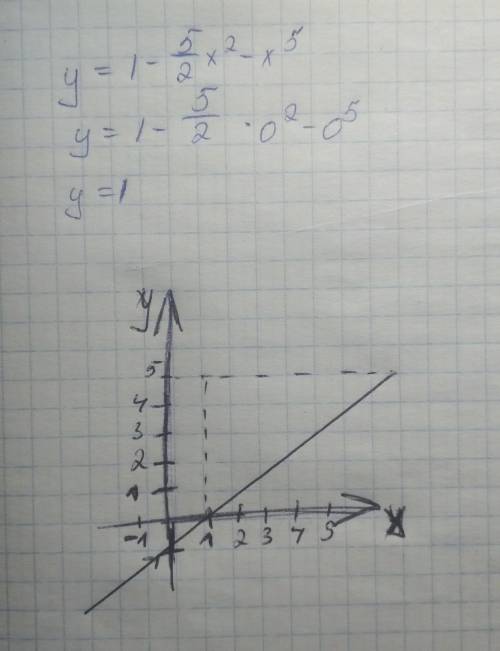 y = 1 - 5/2 x² - x⁵
y = 1 - 5/2 · 0² - 0⁵
y = 1
y
5
4
3
2
1
-1 1 2 3 4 5 x
-1